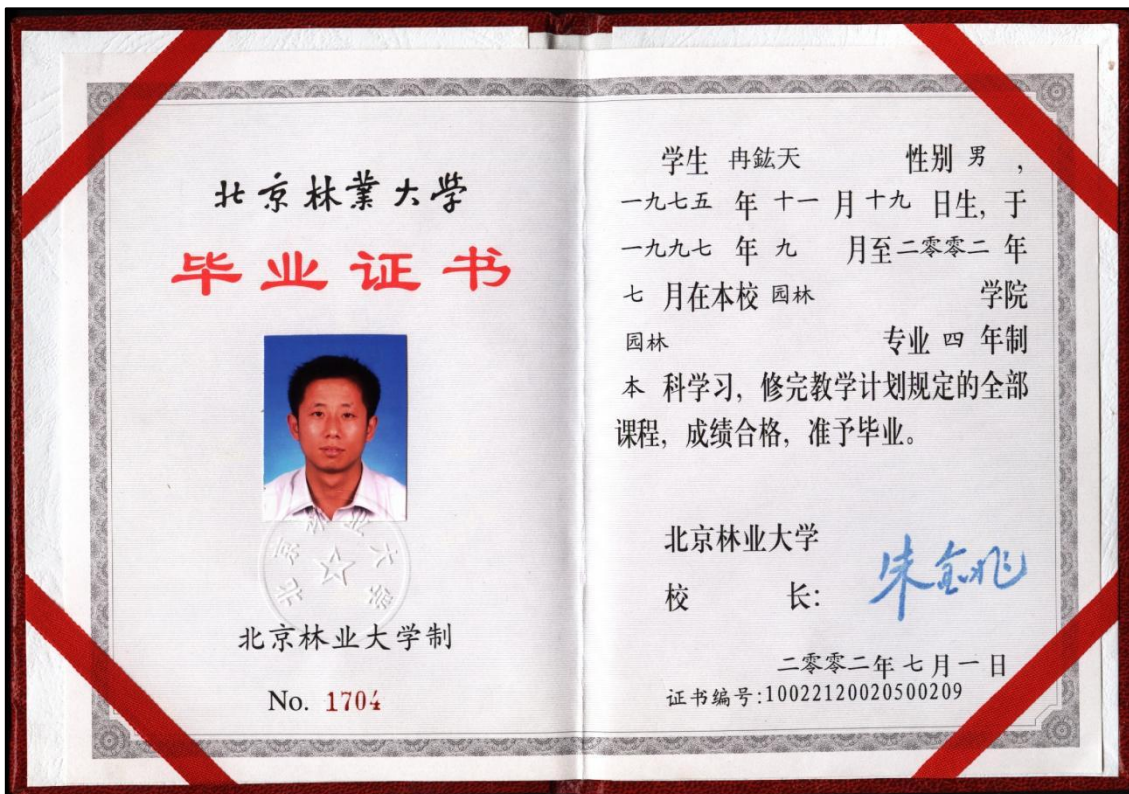 北京林業大学
毕业证书
北京林业大学
北京林业大学制
No. 1704
学生 冉鈜天 性别 男,
一九七五 年 十一 月 十九 日生, 于
一九九七 年 九 月至 二零零二 年
七 月在本校 园林 学院
园林 专业 四 年制
本 科学习, 修完教学计划规定的全部
课程, 成绩合格, 准予毕业。
北京林业大学
校 长: 朱金兆
二零零二年 七 月 一 日
证书编号:10022120020500209